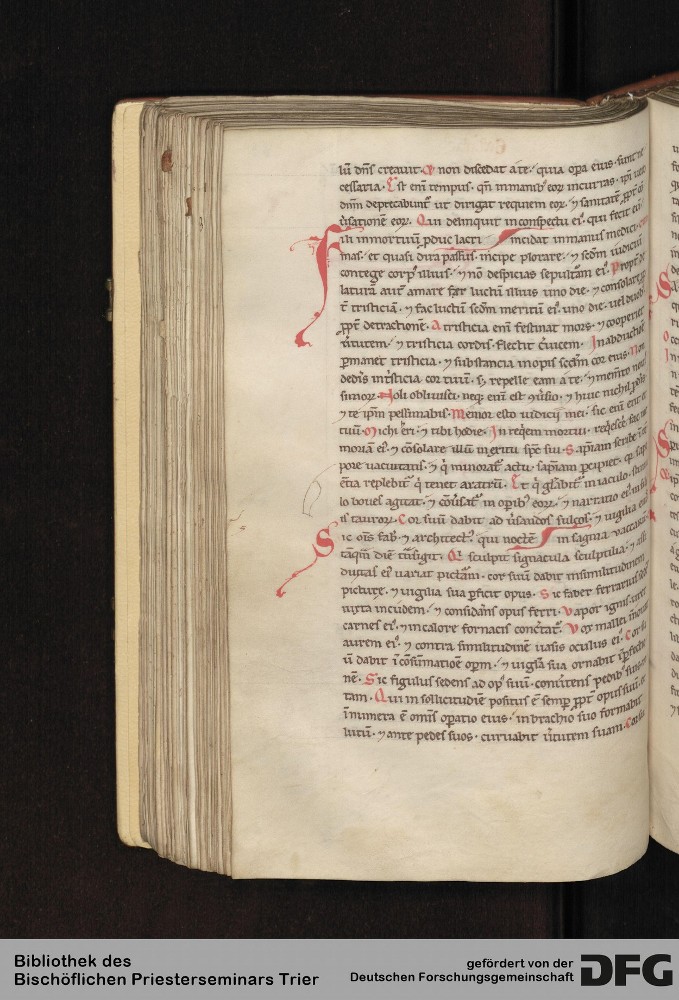 lū dn̄s creauit. & non discedat a te. quia opa eius sunt ne
cessaria. Est enī tempus. qn̄ in manib; eor incurras. ipi uero
dn̄m deprecabunt ut dirigat requiem eor. & sanitatē ppt
uersationē eor. Qui delinquit in conspectu ei. qui fecit eū
Fili in mortuū pduc lacri incidat in manus medici.
mas. et quasi dira passus. incipe plorare. & scdm iudiciū
contege corp illius. & nō despicias sepulturam ei. Propt de
laturā aut amare fer luctū illius uno die. & consolare
tristiciā. & fac luctū scdm meritū ei. uno die. uel duob
ppt detractionē. A tristicia enī festinat mors. & cooperiet
uirtutem. & tristicia cordis flectit ceruicem. In abductione
pmanet tristicia. & substantia inopis scdm cor eius. Non
dederis in tristicia cor tuū. s; repelle eam a te. & memto noui
simor. Noli obliuisci. neq; enī est conuersio. & huic nichil pderis
& te ipm pessimabis. Memor esto iudicii mei. sic enī erit et
tuū. Michi heri. & tibi hodie. In reqiem mortui. reqiesce fac me
moriam ei. & cōsolare illū in exitu sps sui. Sapiam scribe in tem
pore uacuitatis. & qi minorat actu. sapiam pcipiet. qa sapi
entia replebit qi tenet aratrū. Et qi gliabit in iaculo. stimu
lo boues agitat. & cōuersat in operib; eor. & narratio ei in fili
is tauror. Cor suū dabit ad uersandos sulcos. & uigilia ei
Sic ois fab. & architect. qui noctē in sagina uaccarum.
tāqm diem transigit. Qi sculpit signacula sculptilia. & assi
duitas ei uariat picturam. cor suū dabit in similitudinem
picture. & uigilia sua pficit opus. Sic faber ferrarius sedens
iuxta incudem. & considerans opus ferri. Vapor ignis uret
carnes ei. & in calore fornacis concertat. Vox mallei innouat
aurem ei. & contra similitudinē uasis oculus ei. Cor su
ū dabit ī cōsummationē operum. & uigilia sua ornabit ipfectio
nē. Sic figulus sedens ad op suū. conuertens pedib suis ro
tam. Qui in sollicitudie positus ē semp ppt opus suū. et
īnumera ē omīs opatio eius. in brachio suo formabit
lutū. & ante pedes suos. curuabit uirtutem suam. Cor suū
Bibliothek des
Bischöflichen Priesterseminars Trier
gefördert von der
Deutschen Forschungsgemeinschaft
DFG